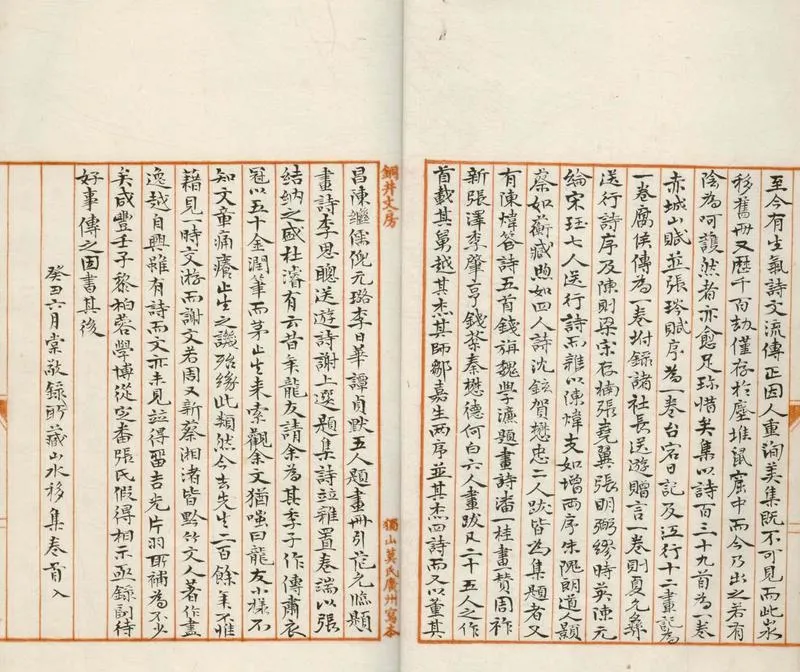 至今有生氣詩文流傳正因人重洵美集既不可見而此山水
移舊冊又歷千百劫僅存於塵堆鼠窟中而今乃出之若有
陰為呵護然者亦愈足珍惜矣集以詩百三十九首為一卷
赤城山賦並張琴賦序為一卷台宕日記及江行十二畫記為
一卷腐侯傳為一卷附錄諸社長送遊贈言一卷則夏允彝
送行詩序及陳則梁宋存楠張堯翼張明弼繆時英陳元
綸宋珏七人送行詩而雜以陳煒支如增兩序朱隗朗道人題
蔡如蘅臧煦如四人詩沈鋐賀懋忠二人跋皆為集題者又
有陳煒答詩五首錢旃魏學濂題畫詩潘一桂畫贊周祚
新張澤李肇亨錢棻秦懋德何白六人畫跋凡二十五人之作
首載其舅越其杰其師鄒嘉生兩序並其杰四詩而又以董其
銅井文房
獨山莫氏廣州寫本
昌陳繼儒倪元璐李日華譚貞默五人題畫冊引范允臨題
畫詩李思聰送遊詩謝上選題集詩竝雜置卷端以張
結納之盛杜濬有云昔年龍友請余為其季子作傳肅衣
冠以五十金潤筆而茅止生來索觀余文猶嗤曰龍友小樣不
知文章痛癢止生之譏殆緣此類然今去先生二百餘年不惟
藉見一時文游而謝文若周又新蔡湘渚皆黔竹文人著作盡
逸越自興雖有詩而文亦未見竝得留吉光片羽所補為不少
矣咸豐壬子黎柏蓉學博從定番張氏假得相示亟錄副待
好事傳之因書其後
癸丑六月棠敬錄所藏山水移集卷首入